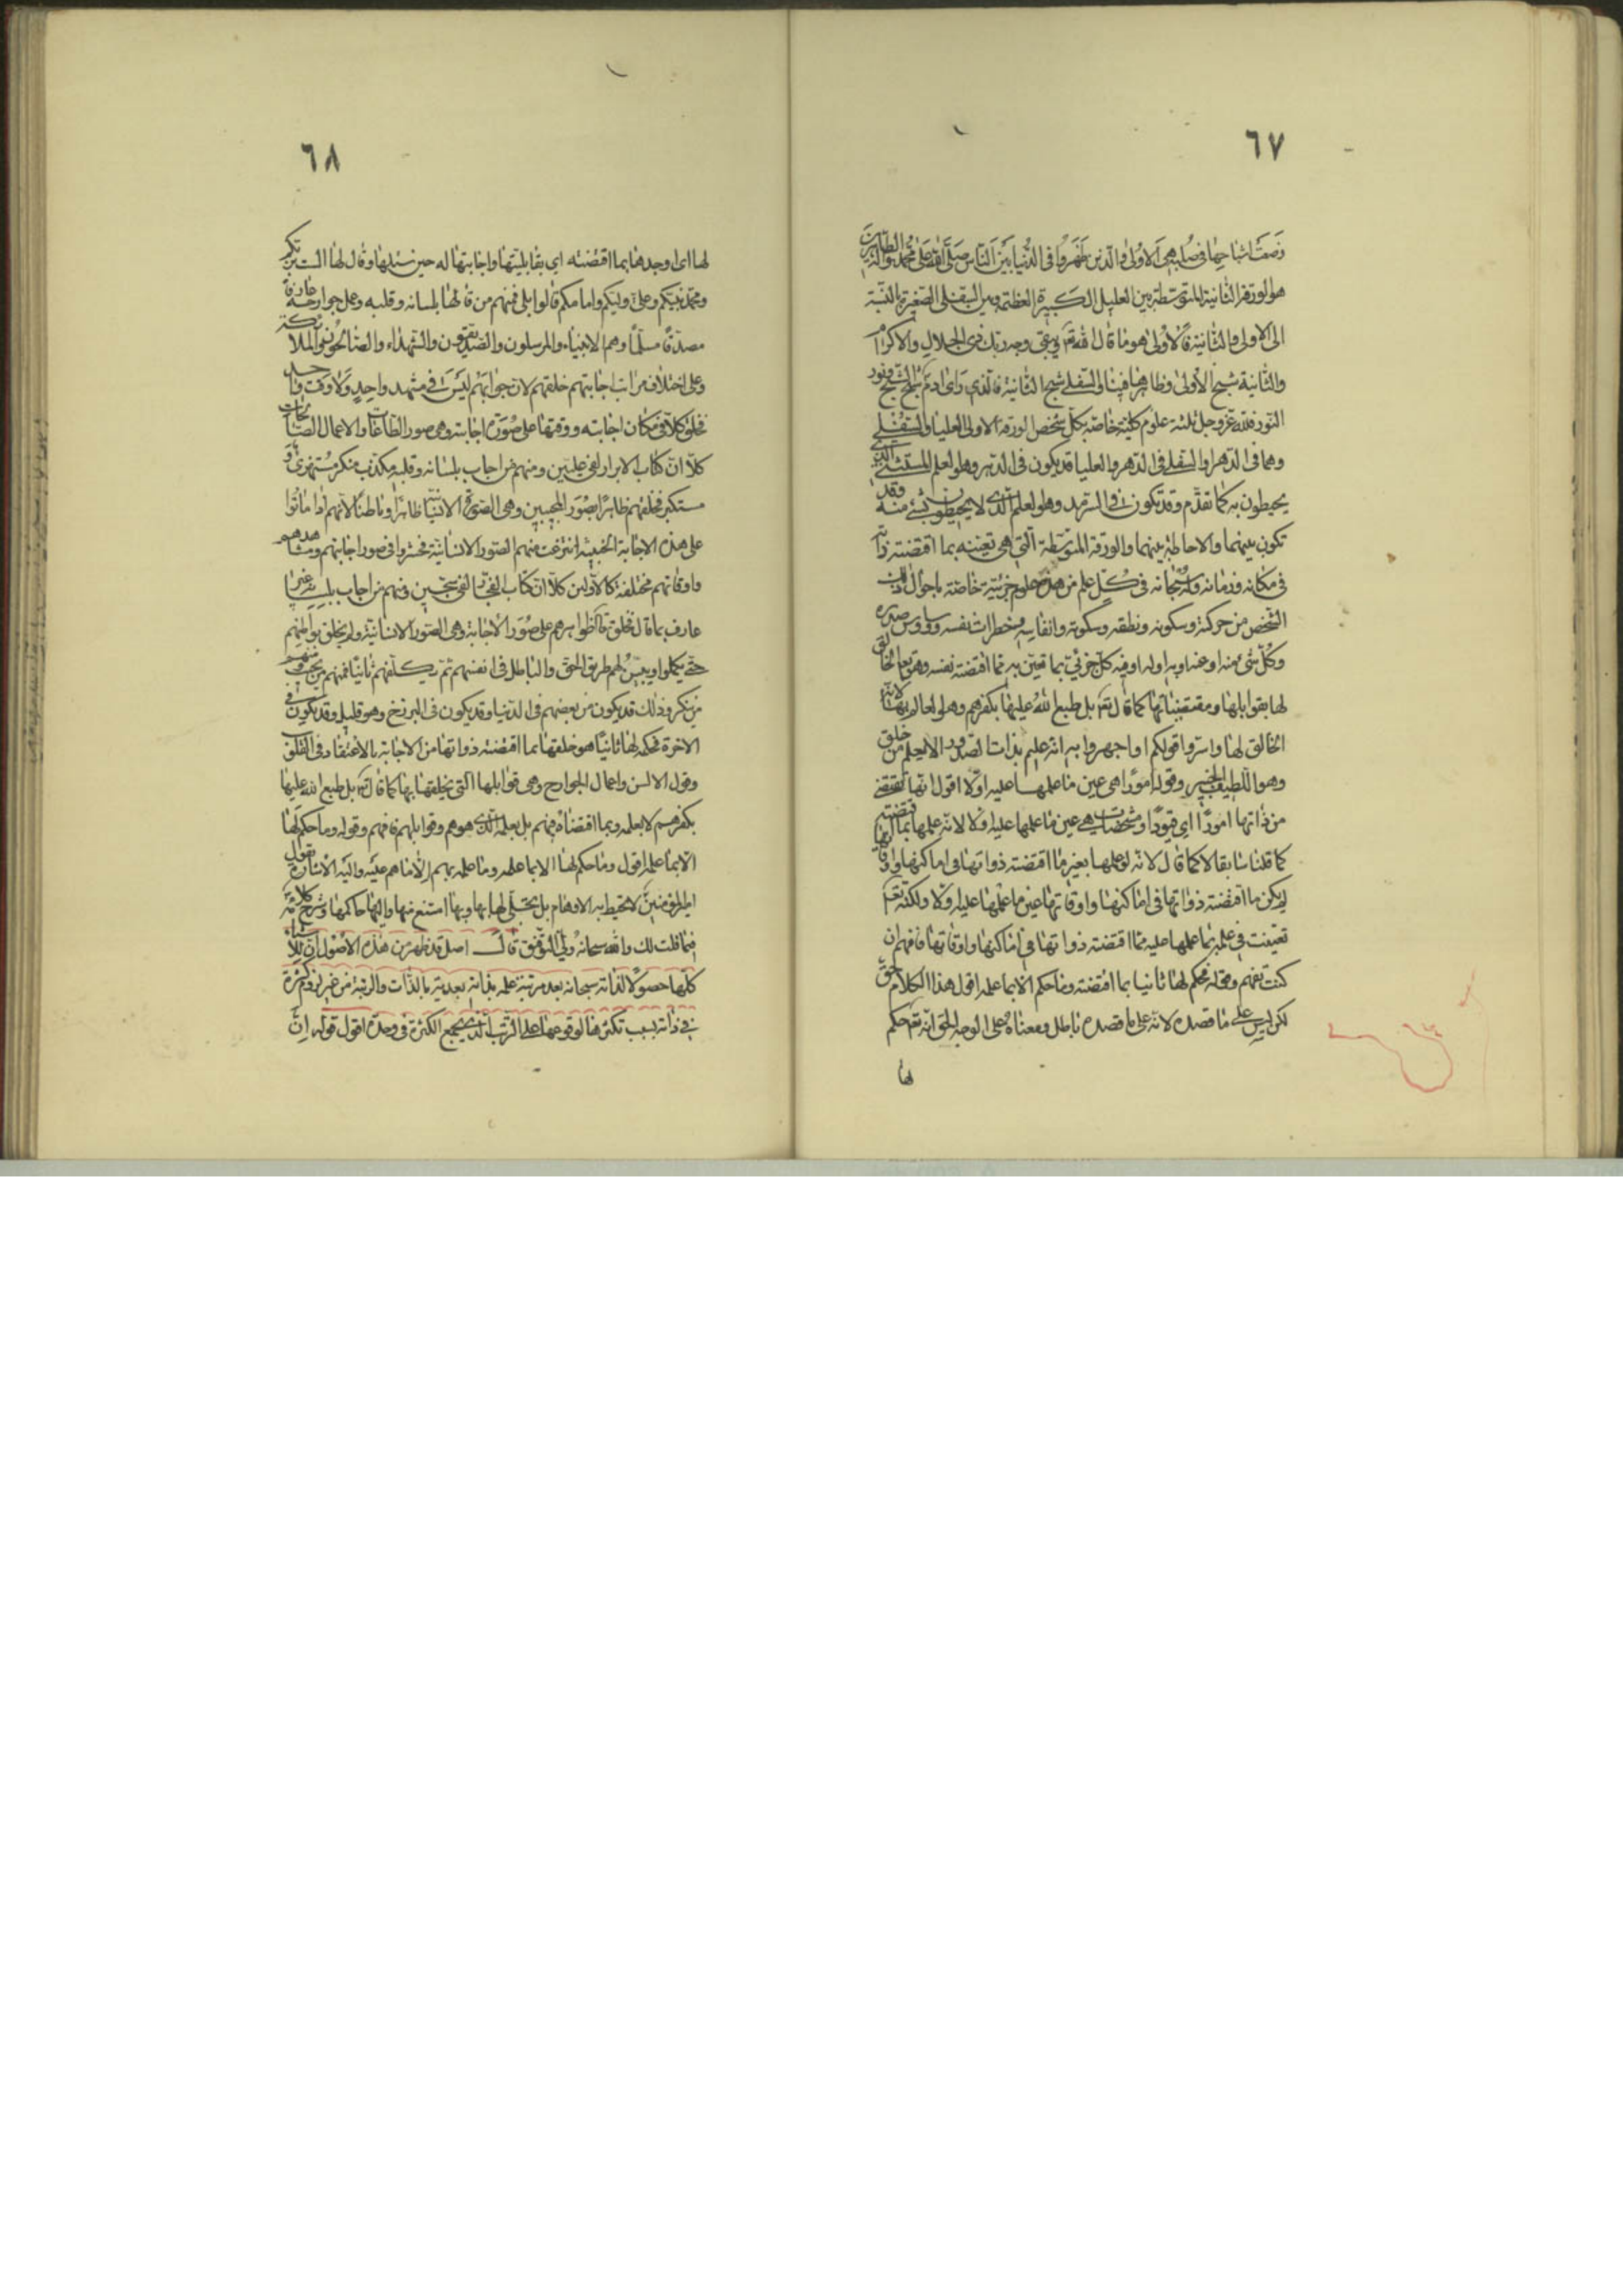 ٦٧
وضعت اشباحها في صلبه هي الاولى والذين ظهروا في الدنيا بين الناس صلى الله على محمد وآله الطاهرين
هو الورقة الثانية المتوسطة بين العليا الكبيرة العظيمة وبين السفلى الصغيرة بالنسبة
الى الاولى والثانية فالاولى هو ما قال الله تعم ويبقى وجه ربك ذي الجلال والاكرام
والثانية شبح الاولى وظاهرها فينا والسفلى شبح الثانية فالذي راى ادم شبح الشبح ونور
النور فلله عز وجل ثلثة علوم كلية خاصة بكل شخص الورقة الاولى العليا والسفلى
وهما في الدهر او السفلى في الدهر والعليا قد يكون في الدهر وهو العلم المستثنى الذي
يحيطون به كما تقدم وقد تكون في السرمد وهو العلم الذي لا يحيطون بشيء منه وقد
تكون بينهما والاحاطة بينهما والورقة المتوسطة التي هي تعينه بما اقتضته ذاته
في مكانه وزمانه وله سبحانه في كل علم من هذه علوم جزئية خاصة باحوال ذلك
الشخص من حركته وسكونه ونطقه وسكوته وانفاسه وخطرات نفسه ووساوس صدره
وكل شيء منه او عنه او به او له او فيه كل جزئي بما تعين به مما اقتضته نفسه وهو تعم الخالق
لها بقوابلها ومقتضياتها كما قال تعم بل طبع الله عليها بكفرهم وهو العالم بها لانه
الخالق لها واسروا قولكم او اجهروا به انه عليم بذات الصدور الا يعلم من خلق
وهو اللطيف الخبير وقوله امورا هي عين ما علمها عليه اولا اقول انها تقتضي
من ذاتها امورا اي قيودا ومشخصات هي عين ما علمها عليه اولا لانه علمها بما اقتضته
كما قلنا سابقا لا كما قال لانه لو علمها بغير ما اقتضته ذواتها في اماكنها واوقاتها
لم يكن ما اقتضته ذواتها في اماكنها واوقاتها عين ما علمها عليه اولا ولكنه تعم
تعينت في علمه بما علمها عليه مما اقتضته ذواتها في اماكنها واوقاتها فافهم ان
كنت تفهم وقوله فحكم لها ثانيا بما اقتضته وما حكم الا بما علمه اقول هذا الكلام حق
لكن ليس على ما قصده لانه على ما قصده باطل ومعناه على الوجه الحق انه تعم حكم
لها
٦٨
لها اي اوجدها بما اقتضته اي بقابليتها واجابتها له حين سئلها وقال لها الست بربكم
ومحمد نبيكم وعلي وليكم وامامكم قالوا بلى فمنهم من قالها بلسانه وقلبه وعمل جوارحه عارفا
مصدقا مسلما وهم الانبياء والمرسلون والصديقون والشهداء والصالحون والملائكة
وعلى اختلاف مراتب اجابتهم خلقهم لان جوابهم ليس في مشهد واحد ولا وقت واحد
فخلق كلا في مكان اجابته ووقتها على صورة اجابته وهي صور الطاعات والاعمال الصالحات
كلا ان كتاب الابرار لفي عليين ومنهم من اجاب بلسانه وقلبه مكذب منكر مستهزئ او
مستكبر فخلقهم ظاهرا بصور المجيبين وهي الصورة الانسانية ظاهرا وباطنا لانهم لما ماتوا
على هذه الاجابة الخبيثة انتزعت منهم الصور الانسانية فحشروا في صور اجابتهم ومشاهدهم
واوقاتهم مختلفة كالاولين كلا ان كتاب الفجار لفي سجين ومنهم من اجاب بلسانه غير
عارف بما قال فخلق ظواهرهم على صور الاجابة وهي الصور الانسانية ولم يخلق بواطنهم
حتى يكملوا ويبين لهم طريق الحق والباطل في انفسهم ثم يكلفهم ثانيا فمنهم من يجيب ومنهم
من ينكر وذلك قد يكون من بعضهم في الدنيا وقد يكون في البرزخ وهو قليل وقد يكون في
الاخرة فحكمه لها ثانيا هو خلقها بما اقتضته ذواتها من الاجابة بالاعتقاد في القلب
وقول الالسن واعمال الجوارح وهي قوابلها التي يخلقها بها كما قال تعم بل طبع الله عليها
بكفرهم لا بعلمه وبما اقتضاه فيهم بل بعلمه الذي هو هم وقوابلهم فافهم وقوله وما حكم لها
الا بما علمه اقول وما حكم لها الا بما علمه وما علمه بهم الا ما هم عليه واليه الاشارة بقول
امير المؤمنين لا تحيط به الاوهام بل تجلى لها بها وبها امتنع منها واليها حاكمها وشرح كلامه
فيما قلت لك والله سبحانه ولي التوفيق قال اصل قد ظهر من هذه الاصول ان للاشياء
كلها حصولا لذاته سبحانه بعد مرتبة علمه بذاته بعدية بالذات والرتبة من غير لزوم كثرة
في ذاته بسبب تكثرها لوقوعها على الترتيب الذي يجمع الكثرة في وحدة اقول قوله ان